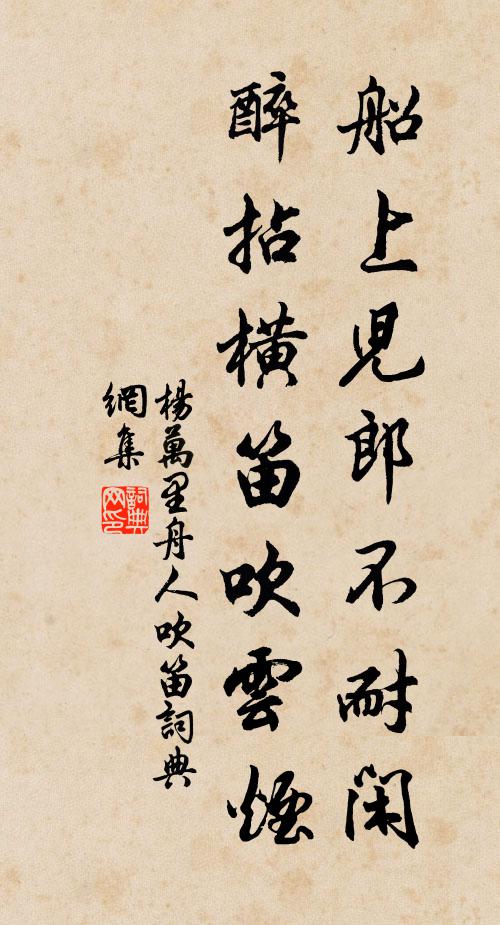 船上兒郎不耐閑
醉拈橫笛吹雲煙
楊萬里舟人吹笛詞典
網集
詞典
网印